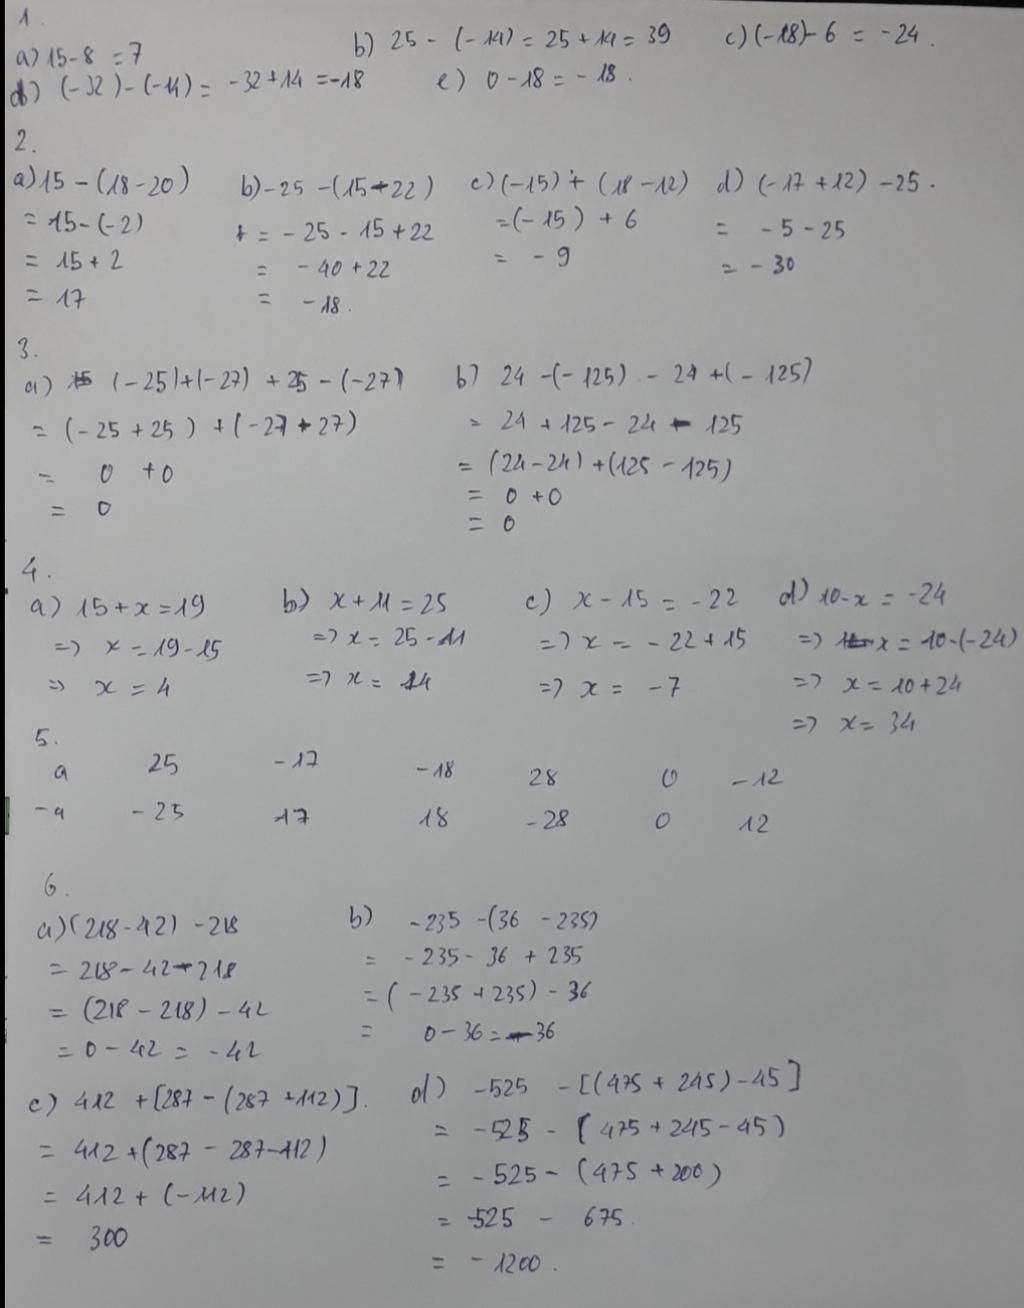 1.
a) 15-8 = 7 b) 25 - (-14) = 25 + 14 = 39 c) (-18) - 6 = -24.
d) (-32) - (-14) = -32 + 14 = -18 e) 0 - 18 = - 18.
2.
a) 15 - (18 - 20) b) -25 - (15 - 22) c) (-15) + (18 - 12) d) (-17 + 12) - 25.
= 15 - (-2) = - 25 - 15 + 22 = (-15) + 6 = - 5 - 25
= 15 + 2 = - 40 + 22 = - 9 = - 30
= 17 = - 18.
3.
a) (-25) + (-27) + 25 - (-27) b) 24 - (-125) - 24 + (-125)
= (-25 + 25) + (-27 + 27) = 24 + 125 - 24 - 125
= 0 + 0 = (24 - 24) + (125 - 125)
= 0 = 0 + 0
= 0
4.
a) 15 + x = 19 b) x + 11 = 25 c) x - 15 = - 22 d) 10 - x = -24
=> x = 19 - 15 => x = 25 - 11 => x = - 22 + 15 => x = 10 - (-24)
=> x = 4 => x = 14 => x = - 7 => x = 10 + 24
=> x = 34
5.
a 25 - 17 - 18 28 0 - 12
-a - 25 17 18 - 28 0 12
6.
a) (218 - 42) - 218 b) - 235 - (36 - 235)
= 218 - 42 - 218 = - 235 - 36 + 235
= (218 - 218) - 42 = (-235 + 235) - 36
= 0 - 42 = - 42 = 0 - 36 = - 36
c) 412 + [287 - (287 + 112)]. d) -525 - [(475 + 245) - 45]
= 412 + (287 - 287 - 112) = - 525 - (475 + 245 - 45)
= 412 + (-112) = - 525 - (475 + 200)
= 300 = -525 - 675.
= - 1200.